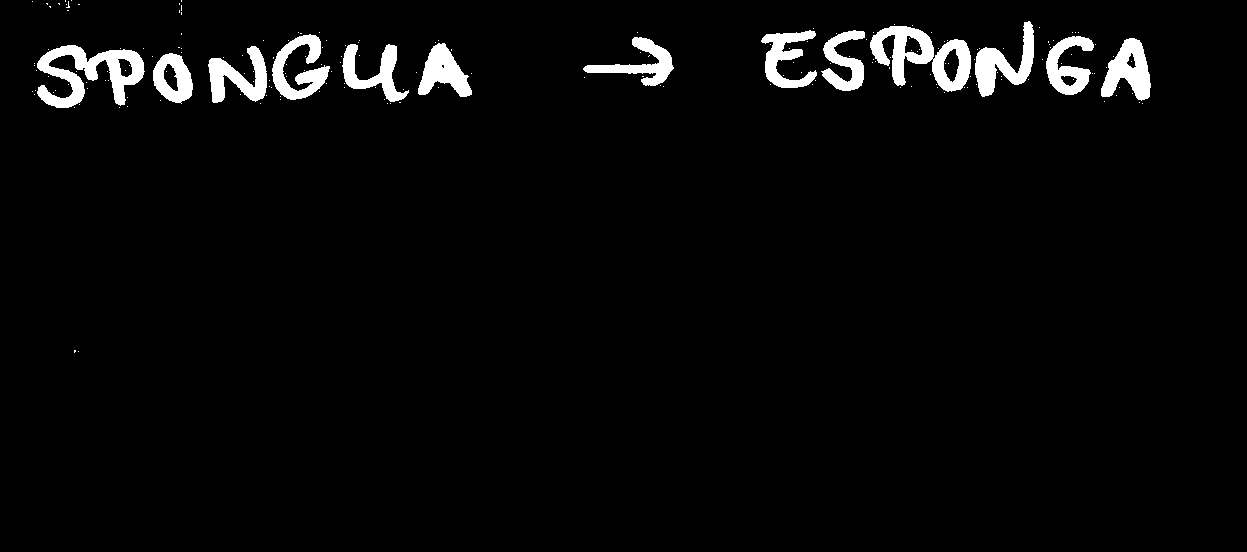 SPONGUA → ESPONGA